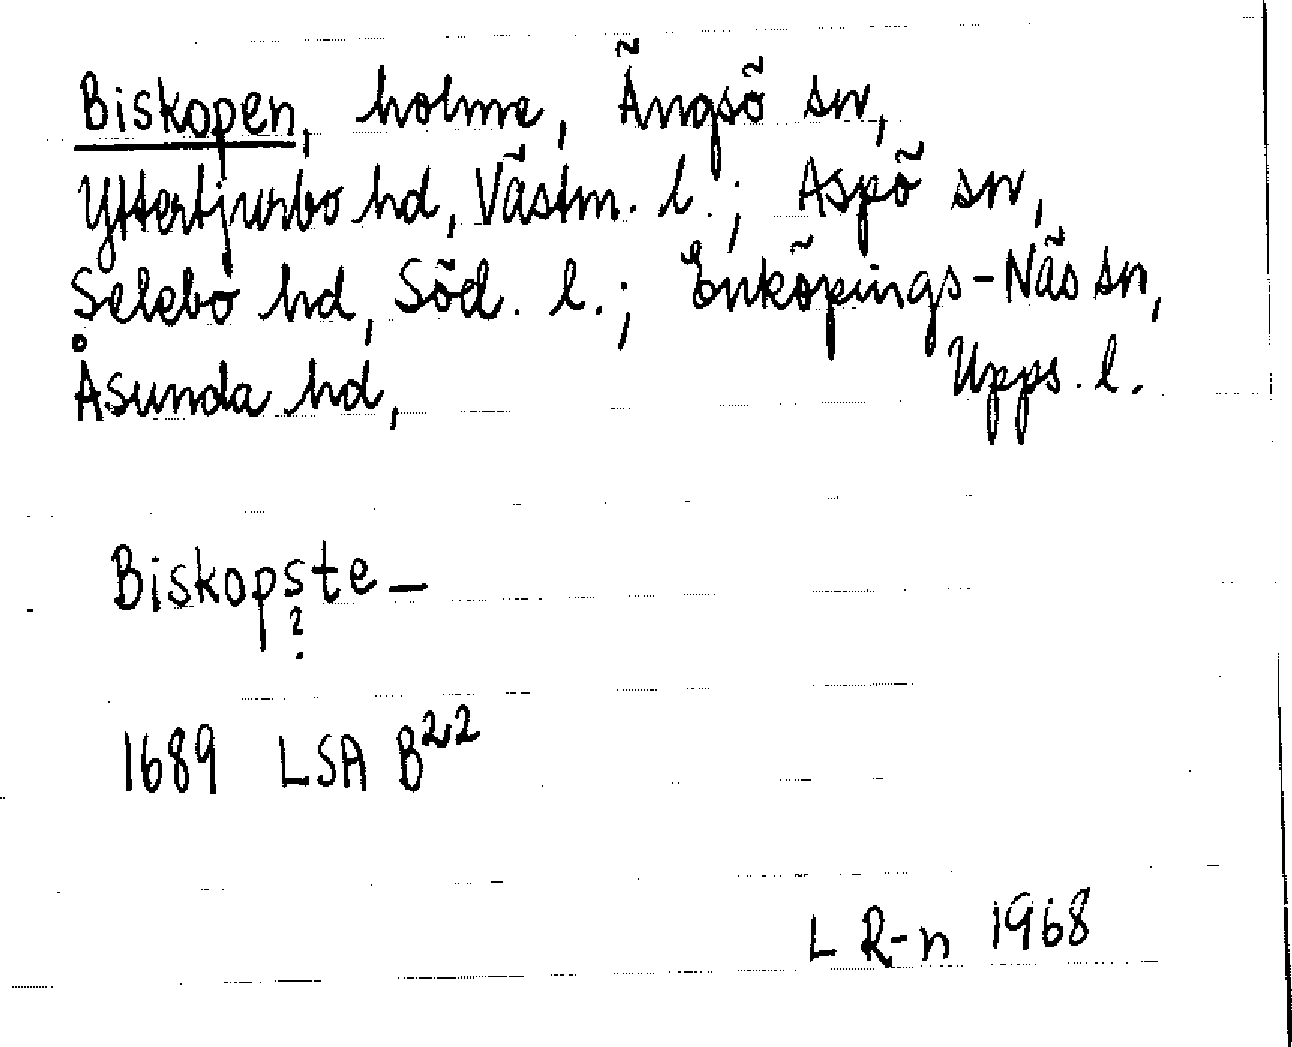 Biskopen, holme, Ängsö sn,
Yttertjurbo hd, Västm. l.; Aspö sn,
Selebo hd, Söd. l.; Enköpings-Näs sn,
Åsunda hd, Upps. l.
Biskopste–
?
1689 LSA B²²
L R-n 1968